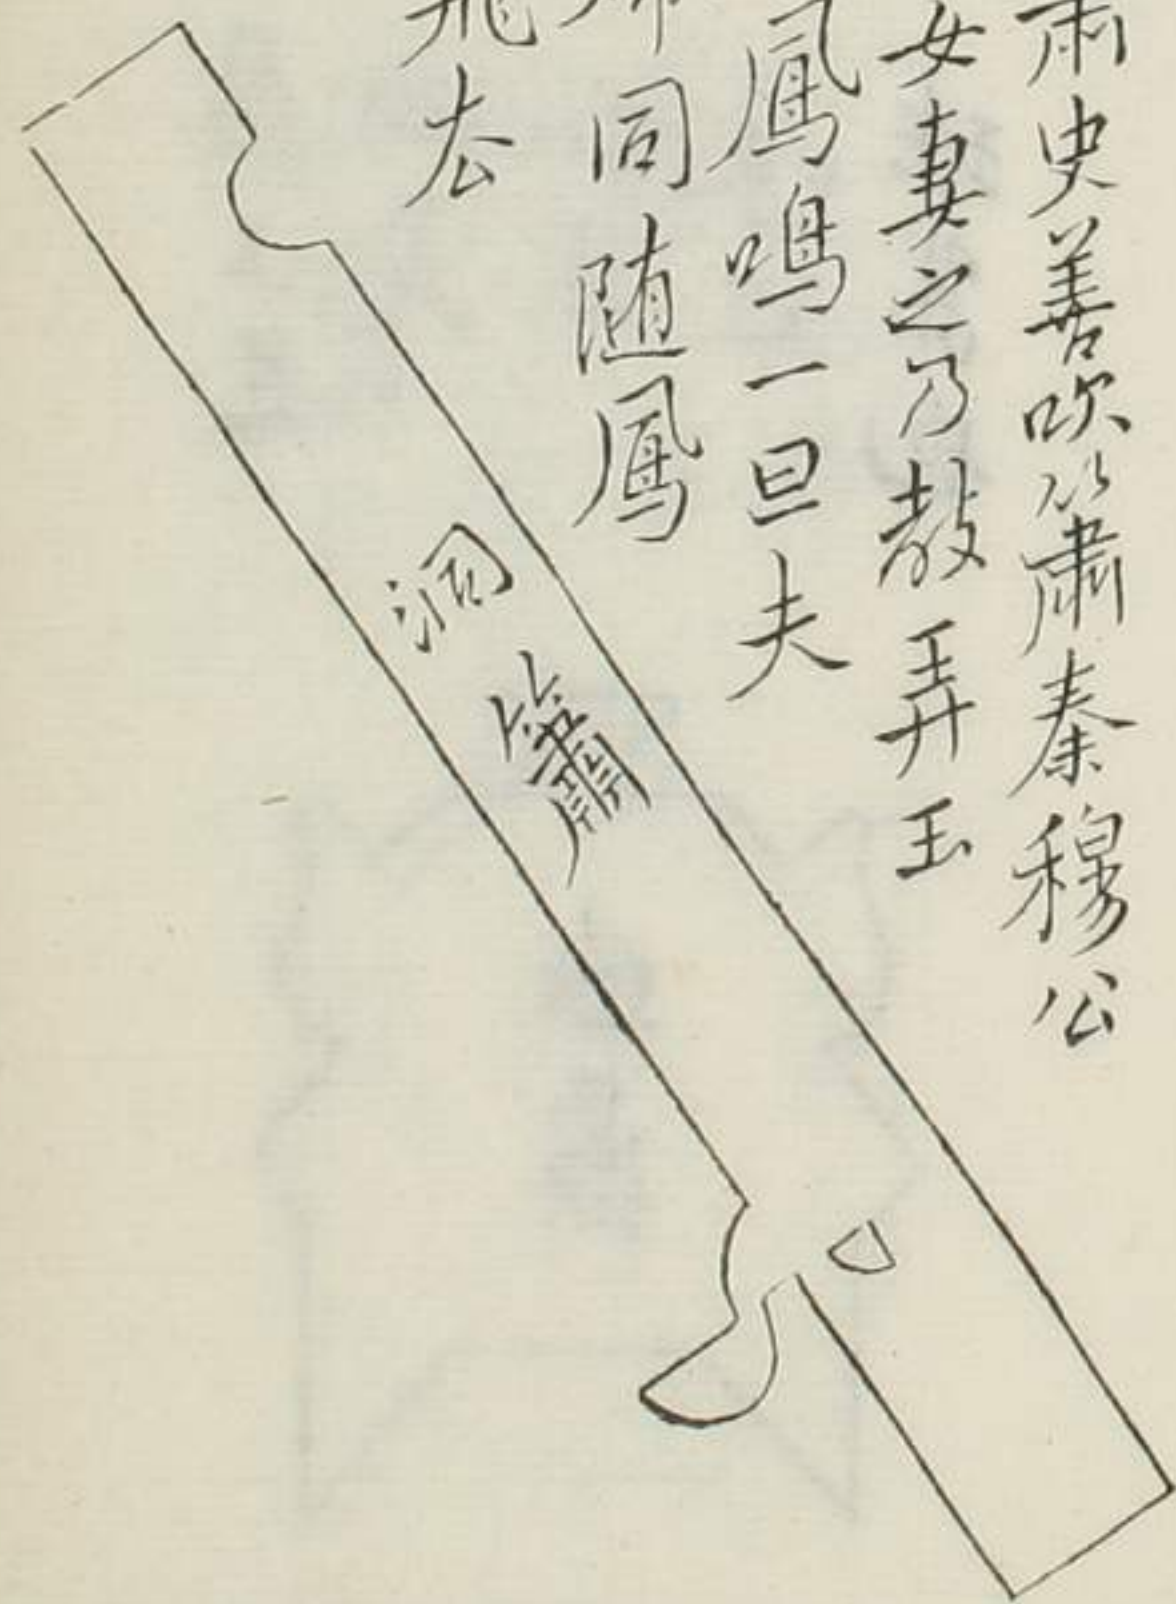 蕭史善吹簫秦穆公
女妻之乃教弄玉
鳳鳴一旦夫
同随鳳
飛去
洞簫